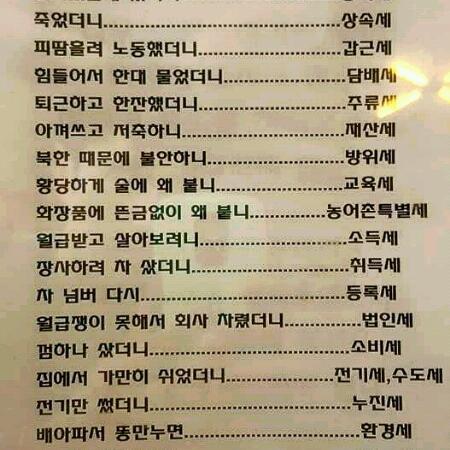 죽었더니..................................상속세
피땀흘려 노동했더니......................갑근세
힘들어서 한대 물었더니..................담배세
퇴근하고 한잔했더니......................주류세
아껴쓰고 저축하니........................재산세
북한 때문에 불안하니....................방위세
황당하게 술에 왜 붙니..................교육세
화장품에 뜬금없이 왜 붙니............농어촌특별세
월급받고 살아보려니......................소득세
장사하려 차 샀더니........................취득세
차 넘버 다시..............................등록세
월급쟁이 못해서 회사 차렸더니............법인세
껌하나 샀더니..............................소비세
집에서 가만히 쉬었더니..................전기세,수도세
전기만 썼더니..............................누진세
배아파서 똥만누면........................환경세